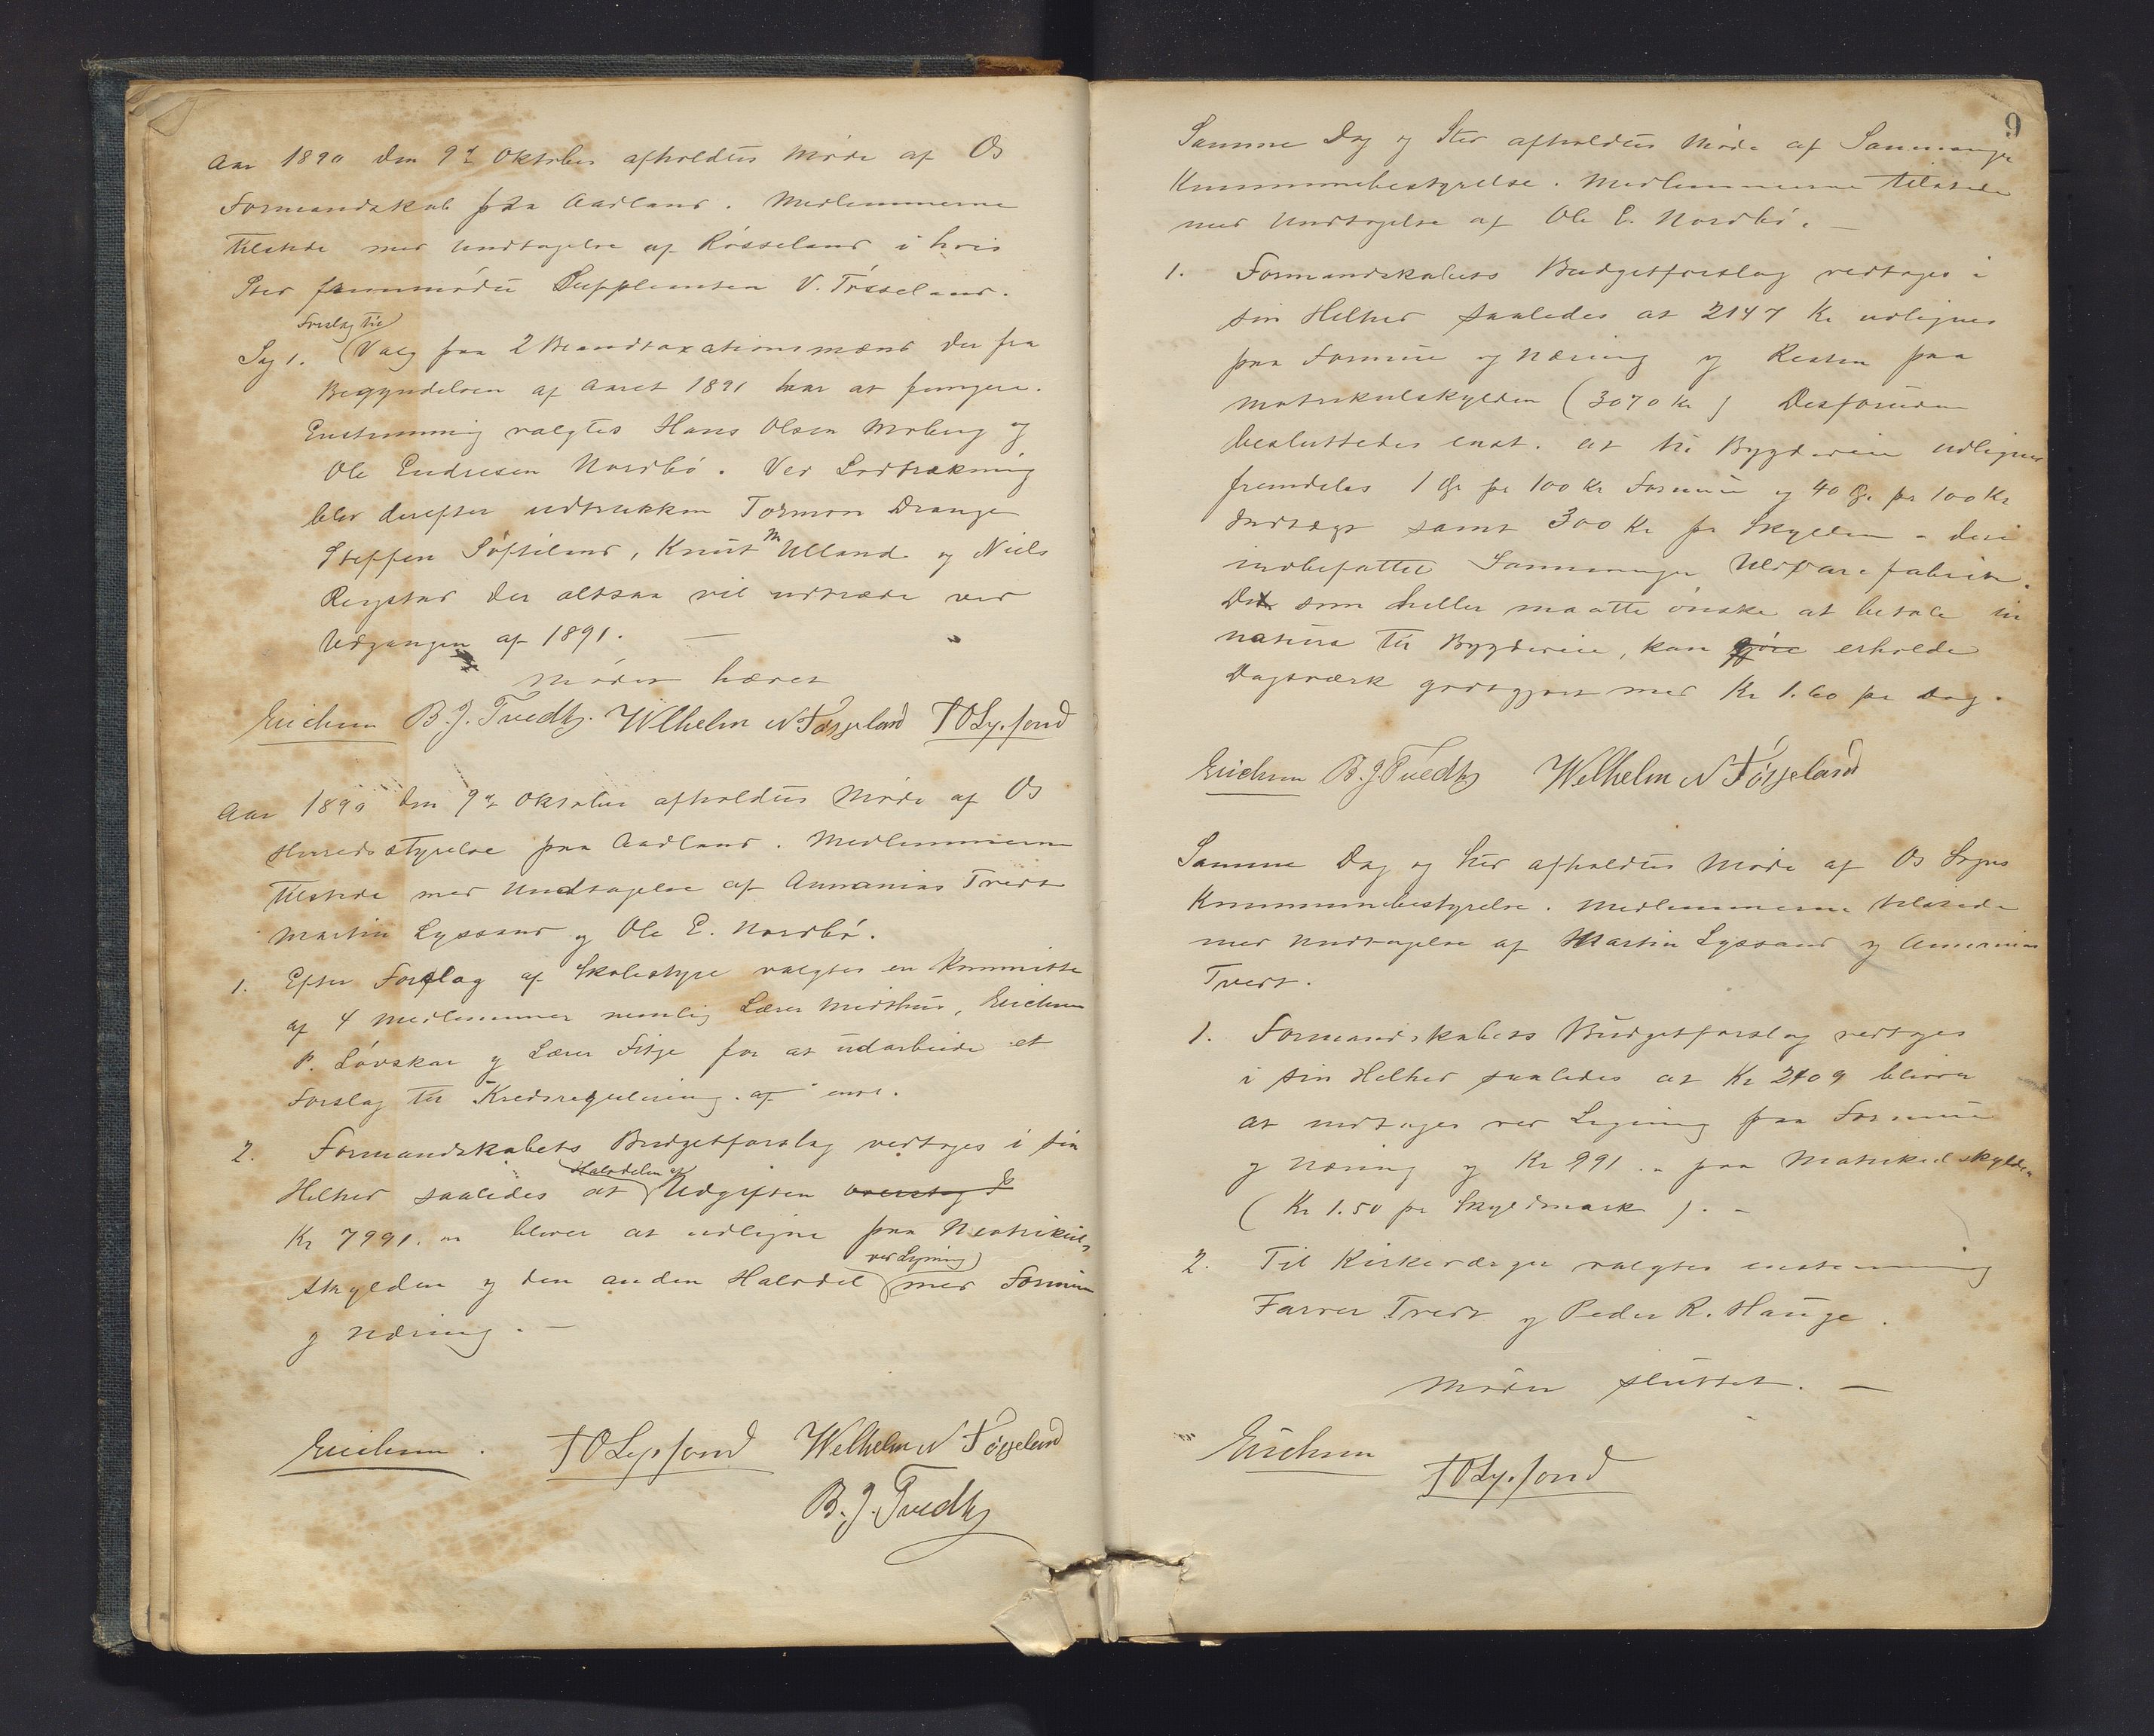 Aar 1890 den 9de Oktober afholdtes Møde af Os
Formandskab paa Aadland. Medlemmerne
tilstede med Undtagelse af Røsseland i hvis
Sted fremmødte Supplianten V. Tøsseland.
Forslag til
Sag 1. (Valg paa 2 Brandtaxationsmænd der fra
Begyndelsen af Aaret 1891 har at fungere.
Enstemmig valgtes Hans Olsen Moberg og
Ole Endresen Nordbø. Ved Lodtrækning
blev derefter udtrukken Tormod Drange
Steffen Søfteland, Knut M Ulland og Niels
der altsaa vil udtræde ved
Udgangen af 1891. —
Mødet hævet
Erichsen B. J. Tvedt Wilhelm N Tøsseland T O Lyssand
Aar 1890 den 9de Oktober afholdtes Møde af Os
Herredsstyrelse paa Aadland. Medlemmerne
tilstede med Undtagelse af Annanias Tvedt
Martin Lyssand og Ole E. Nordbø.
1. Efter Forslag af Skolestyre valgtes en Kommitte
af 4 Medlemmer nemlig Lærer Midthus, Erichsen
P. Løvskar og Lærer Fitje for at udarbeide et
Forslag til Kredsregulering af
2. Formandskabets Budgetforslag vedtoges i sin
Halvdelen af
Helhed saaledes at (Udgiften oversteg de
Kr 7991. " bliver at udligne paa Matrikul-
ved Ligning
skylden og den anden Halvdel (med Formue
og Næring. —
Erichsen. T O Lyssand Welhelm N Tøsseland
B. J. Tvedt
9
Samme Dag og Sted afholdtes Møde af Samnanger
Kommunebestyrelse. Medlemmerne tilstede
med Undtagelse af Ole E. Nordbø. —
1. Formandskabets Budgetforslag vedtages i
sin Helhed saaledes at 2147 Kr udlignes
paa Formue og Næring og Resten paa
Matrikulskylden (3070 Kr) Desforuden
besluttedes enst. at til Bygdeveie udlignes
fremdeles 1 Øre pr 100 Kr Formue og 40 Øre pr 100 Kr
Indtægt samt 300 Kr pr Skylden - deri
indbefattet Samnanger Uldvarefabrik.
De som heller maatte ønske at betale in
natura til Bygdeveie, kan gjøre erholde
Dagsværk godtgjort med Kr 1.60 pr Dag.
Erichsen B. J Tvedt Welhelm N Tøsseland
Samme Dag og Sted afholdtes Møde af Os Sogns
Kommunebestyrelse. Medlemmerne tilstede
med Undtagelse af Martin Lyssand og Annanias
Tvedt.
1. Formandskabets Budgetforslag vedtoges
i sin Helhed saaledes at Kr 2109 bliver
at udtages ved Ligning paa Formue
og Næring og Kr 991. " paa Matrikulskylden
(Kr 1.50 pr Skyldmark). —
2. Til Kirkeværger valgtes enstemmig
Farver Tvedt og Peder R. Hauge.
Mødet sluttet. —
Erichsen
T O Lyssand